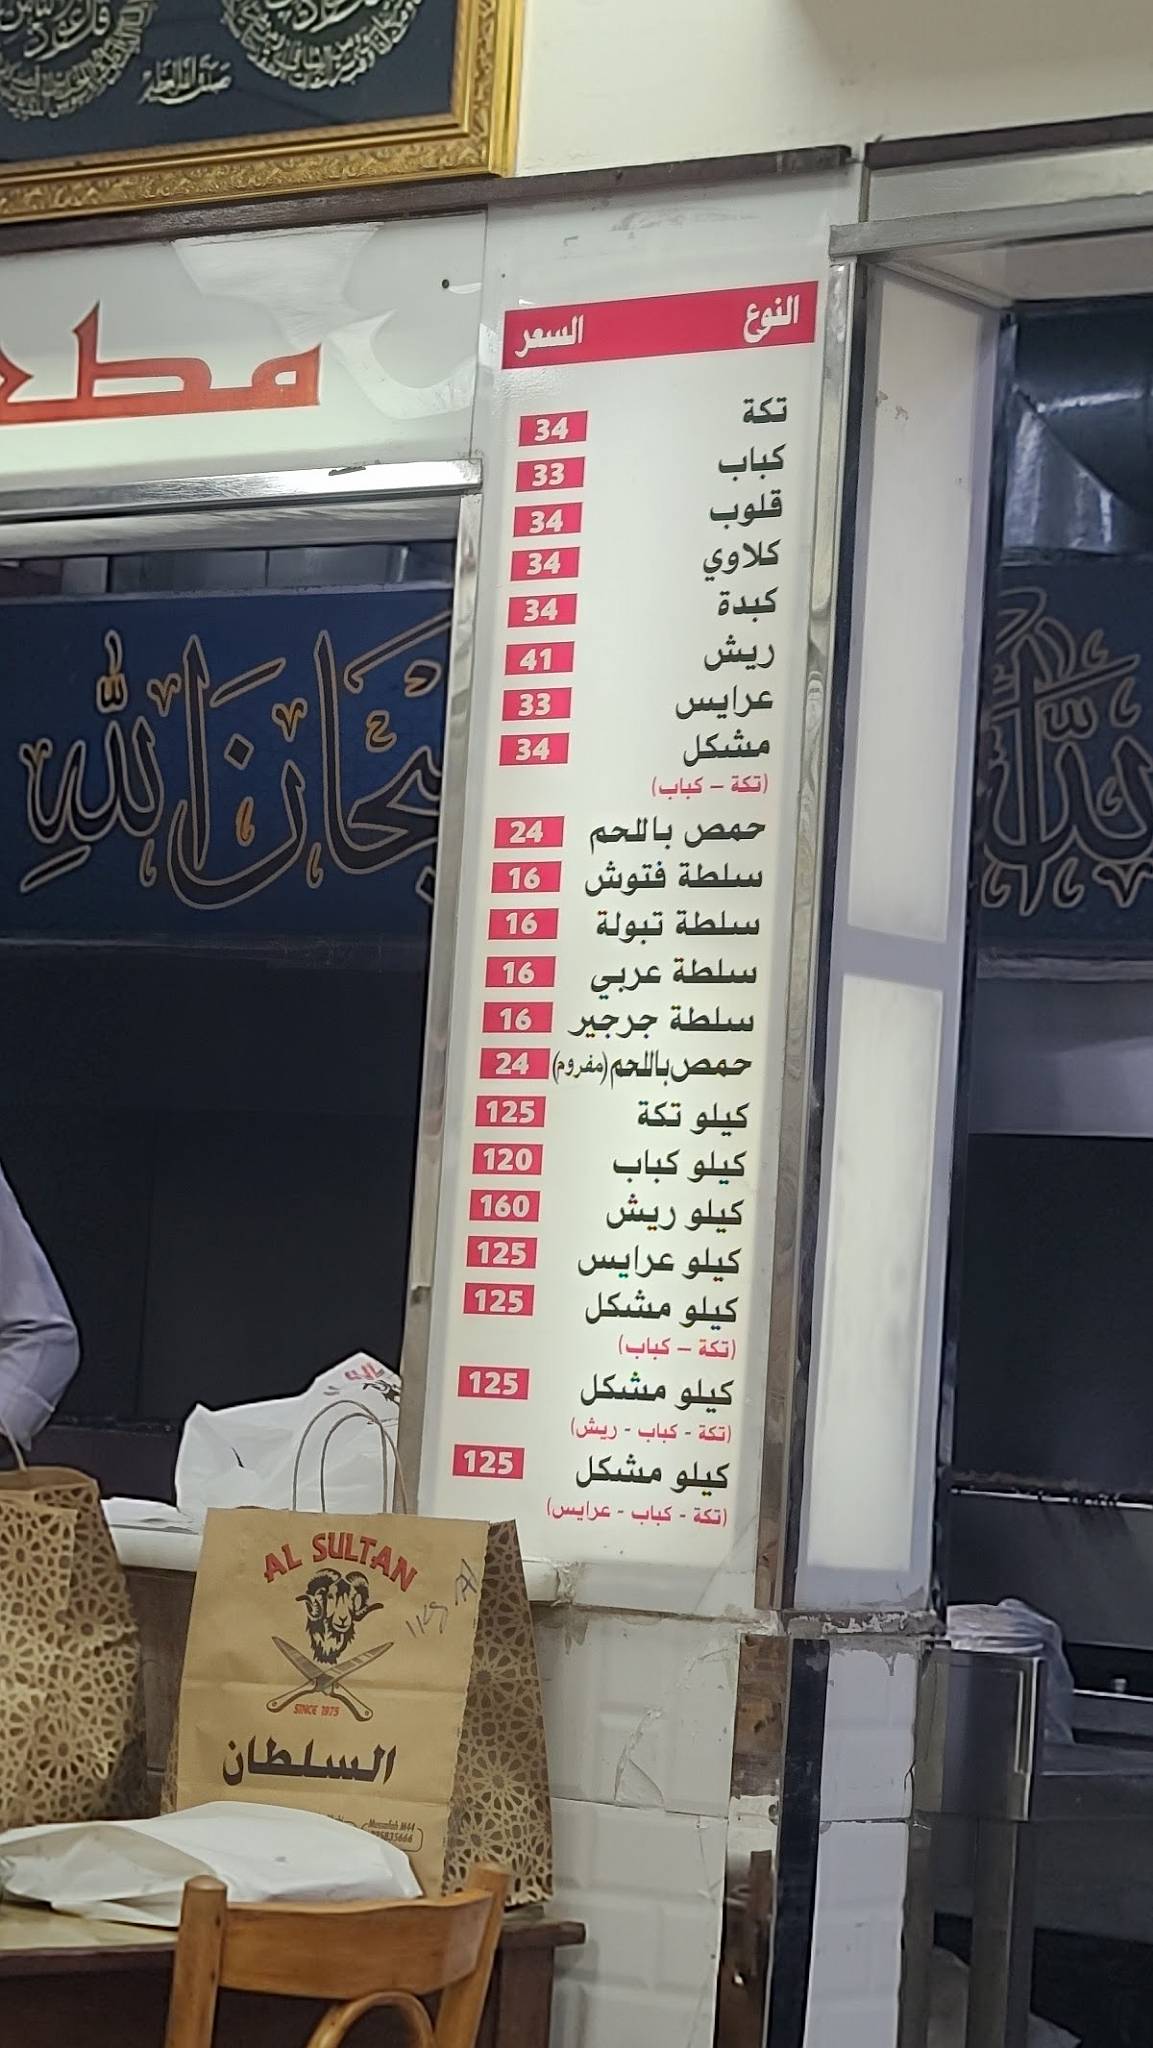 صدق الله العظيم
مطع
النوع السعر
تكة 34
كباب 33
قلوب 34
كلاوي 34
كبدة 34
ريش 41
عرايس 33
مشكل 34
(تكة - كباب)
حمص باللحم 24
سلطة فتوش 16
سلطة تبولة 16
سلطة عربي 16
سلطة جرجير 16
حمص باللحم (مفروم) 24
كيلو تكة 125
كيلو كباب 120
كيلو ريش 160
كيلو عرايس 125
كيلو مشكل 125
(تكة - كباب)
كيلو مشكل 125
(تكة - كباب - ريش)
كيلو مشكل 125
(تكة - كباب - عرايس)
AL SULTAN
SINCE 1975
السلطان
Mussafah M44